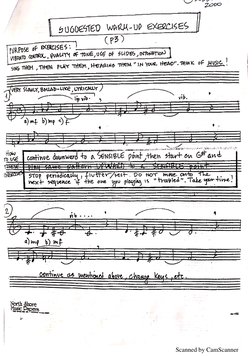 2000
SUGGESTED WARM-UP EXERCISES
(p3)
PURPOSE OF EXERCISES:
VIBRATO CONTROL, QUALITY OF TONE, USE OF SLIDES, INTONATION
SING THEM, THEN PLAY THEM, HEARING THEM "IN YOUR HEAD". THINK OF
1) VERY SLOWLY, BALLAD-LIKE, LYRICALLY
a) mf b) mp c) f
HOW TO USE
continue downward to a SENSIBLE point, then start on G# and
STOP periodically, flutter/rest. Do NOT move onto the
next sequence if the one you playing is "troubled". Take your time!
2)
a) mp b) mf
a) mf b) mf
continue as mentioned above, change keys, etc.
North Shore
Scanned by CamScanner